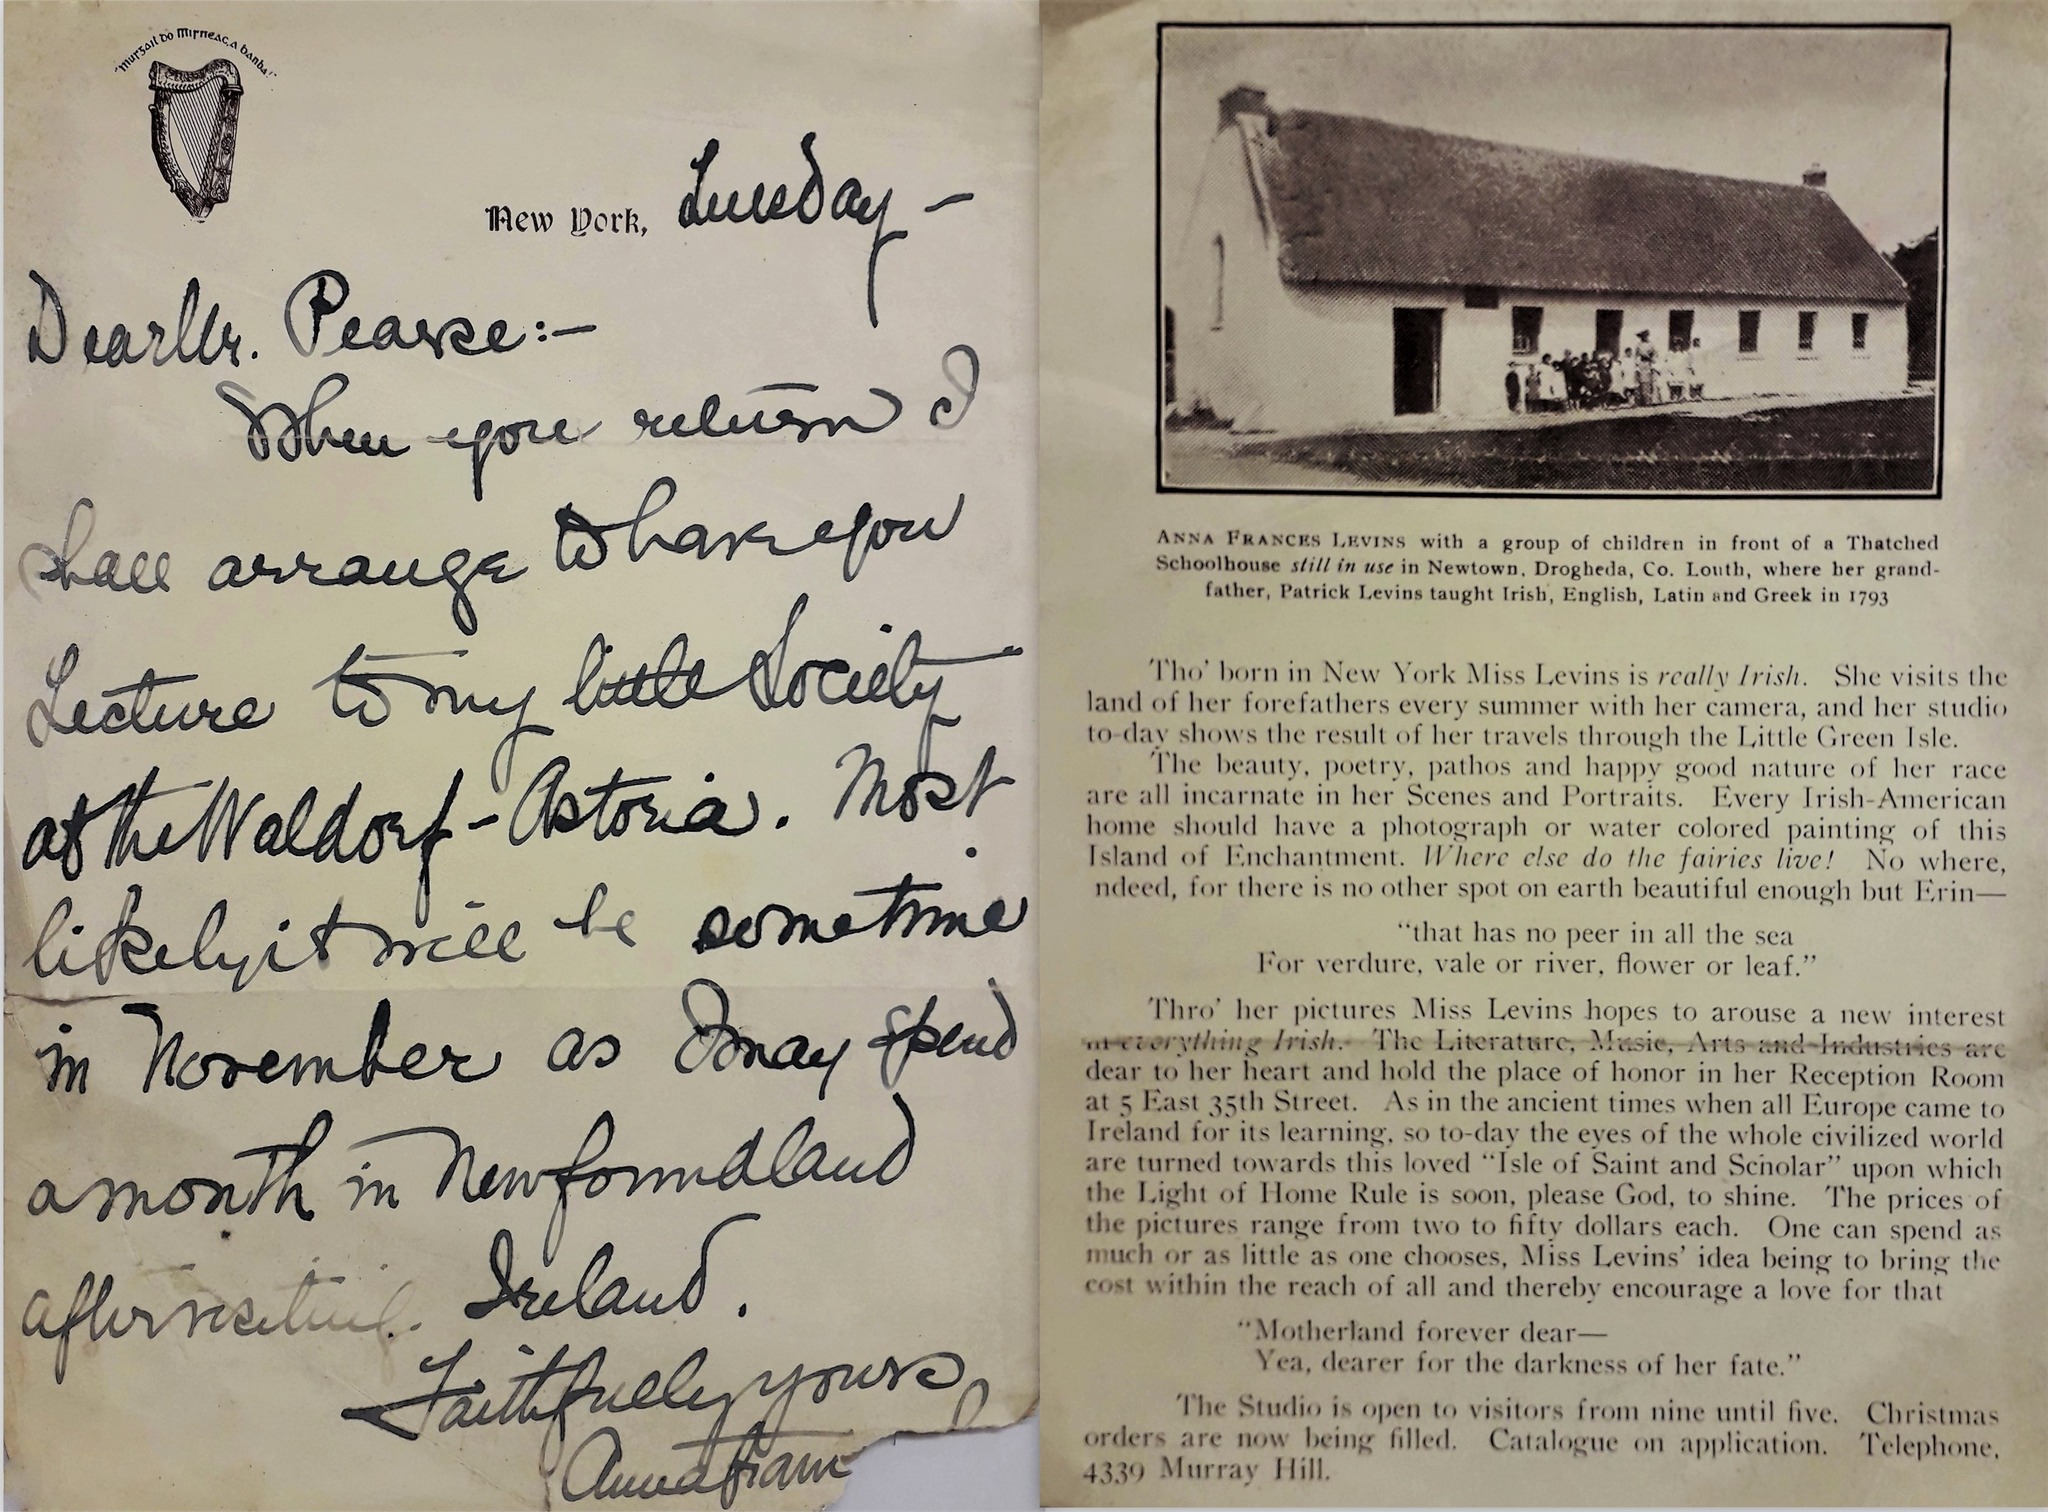 "Mursail do Misneac, a banba!"
New York, Tuesday —
Dear Mr. Pearse:—
When you return I
shall arrange to have you
Lecture to my little Society
at the Waldorf-Astoria. Most
likely it will be sometime
in November as I may spend
a month in Newfoundland
after visiting Ireland.
Faithfully yours
Anna Fran
ANNA FRANCES LEVINS with a group of children in front of a Thatched
Schoolhouse still in use in Newtown, Drogheda, Co. Louth, where her grand-
father, Patrick Levins taught Irish, English, Latin and Greek in 1793
Tho' born in New York Miss Levins is really Irish. She visits the
land of her forefathers every summer with her camera, and her studio
to-day shows the result of her travels through the Little Green Isle.
The beauty, poetry, pathos and happy good nature of her race
are all incarnate in her Scenes and Portraits. Every Irish-American
home should have a photograph or water colored painting of this
Island of Enchantment. Where else do the fairies live! No where,
ndeed, for there is no other spot on earth beautiful enough but Erin—
"that has no peer in all the sea
For verdure, vale or river, flower or leaf."
Thro' her pictures Miss Levins hopes to arouse a new interest
in everything Irish. The Literature, Music, Arts and Industries are
dear to her heart and hold the place of honor in her Reception Room
at 5 East 35th Street. As in the ancient times when all Europe came to
Ireland for its learning, so to-day the eyes of the whole civilized world
are turned towards this loved "Isle of Saint and Scholar" upon which
the Light of Home Rule is soon, please God, to shine. The prices of
the pictures range from two to fifty dollars each. One can spend as
much or as little as one chooses, Miss Levins' idea being to bring the
cost within the reach of all and thereby encourage a love for that
"Motherland forever dear—
Yea, dearer for the darkness of her fate."
The Studio is open to visitors from nine until five. Christmas
orders are now being filled. Catalogue on application. Telephone,
4339 Murray Hill.